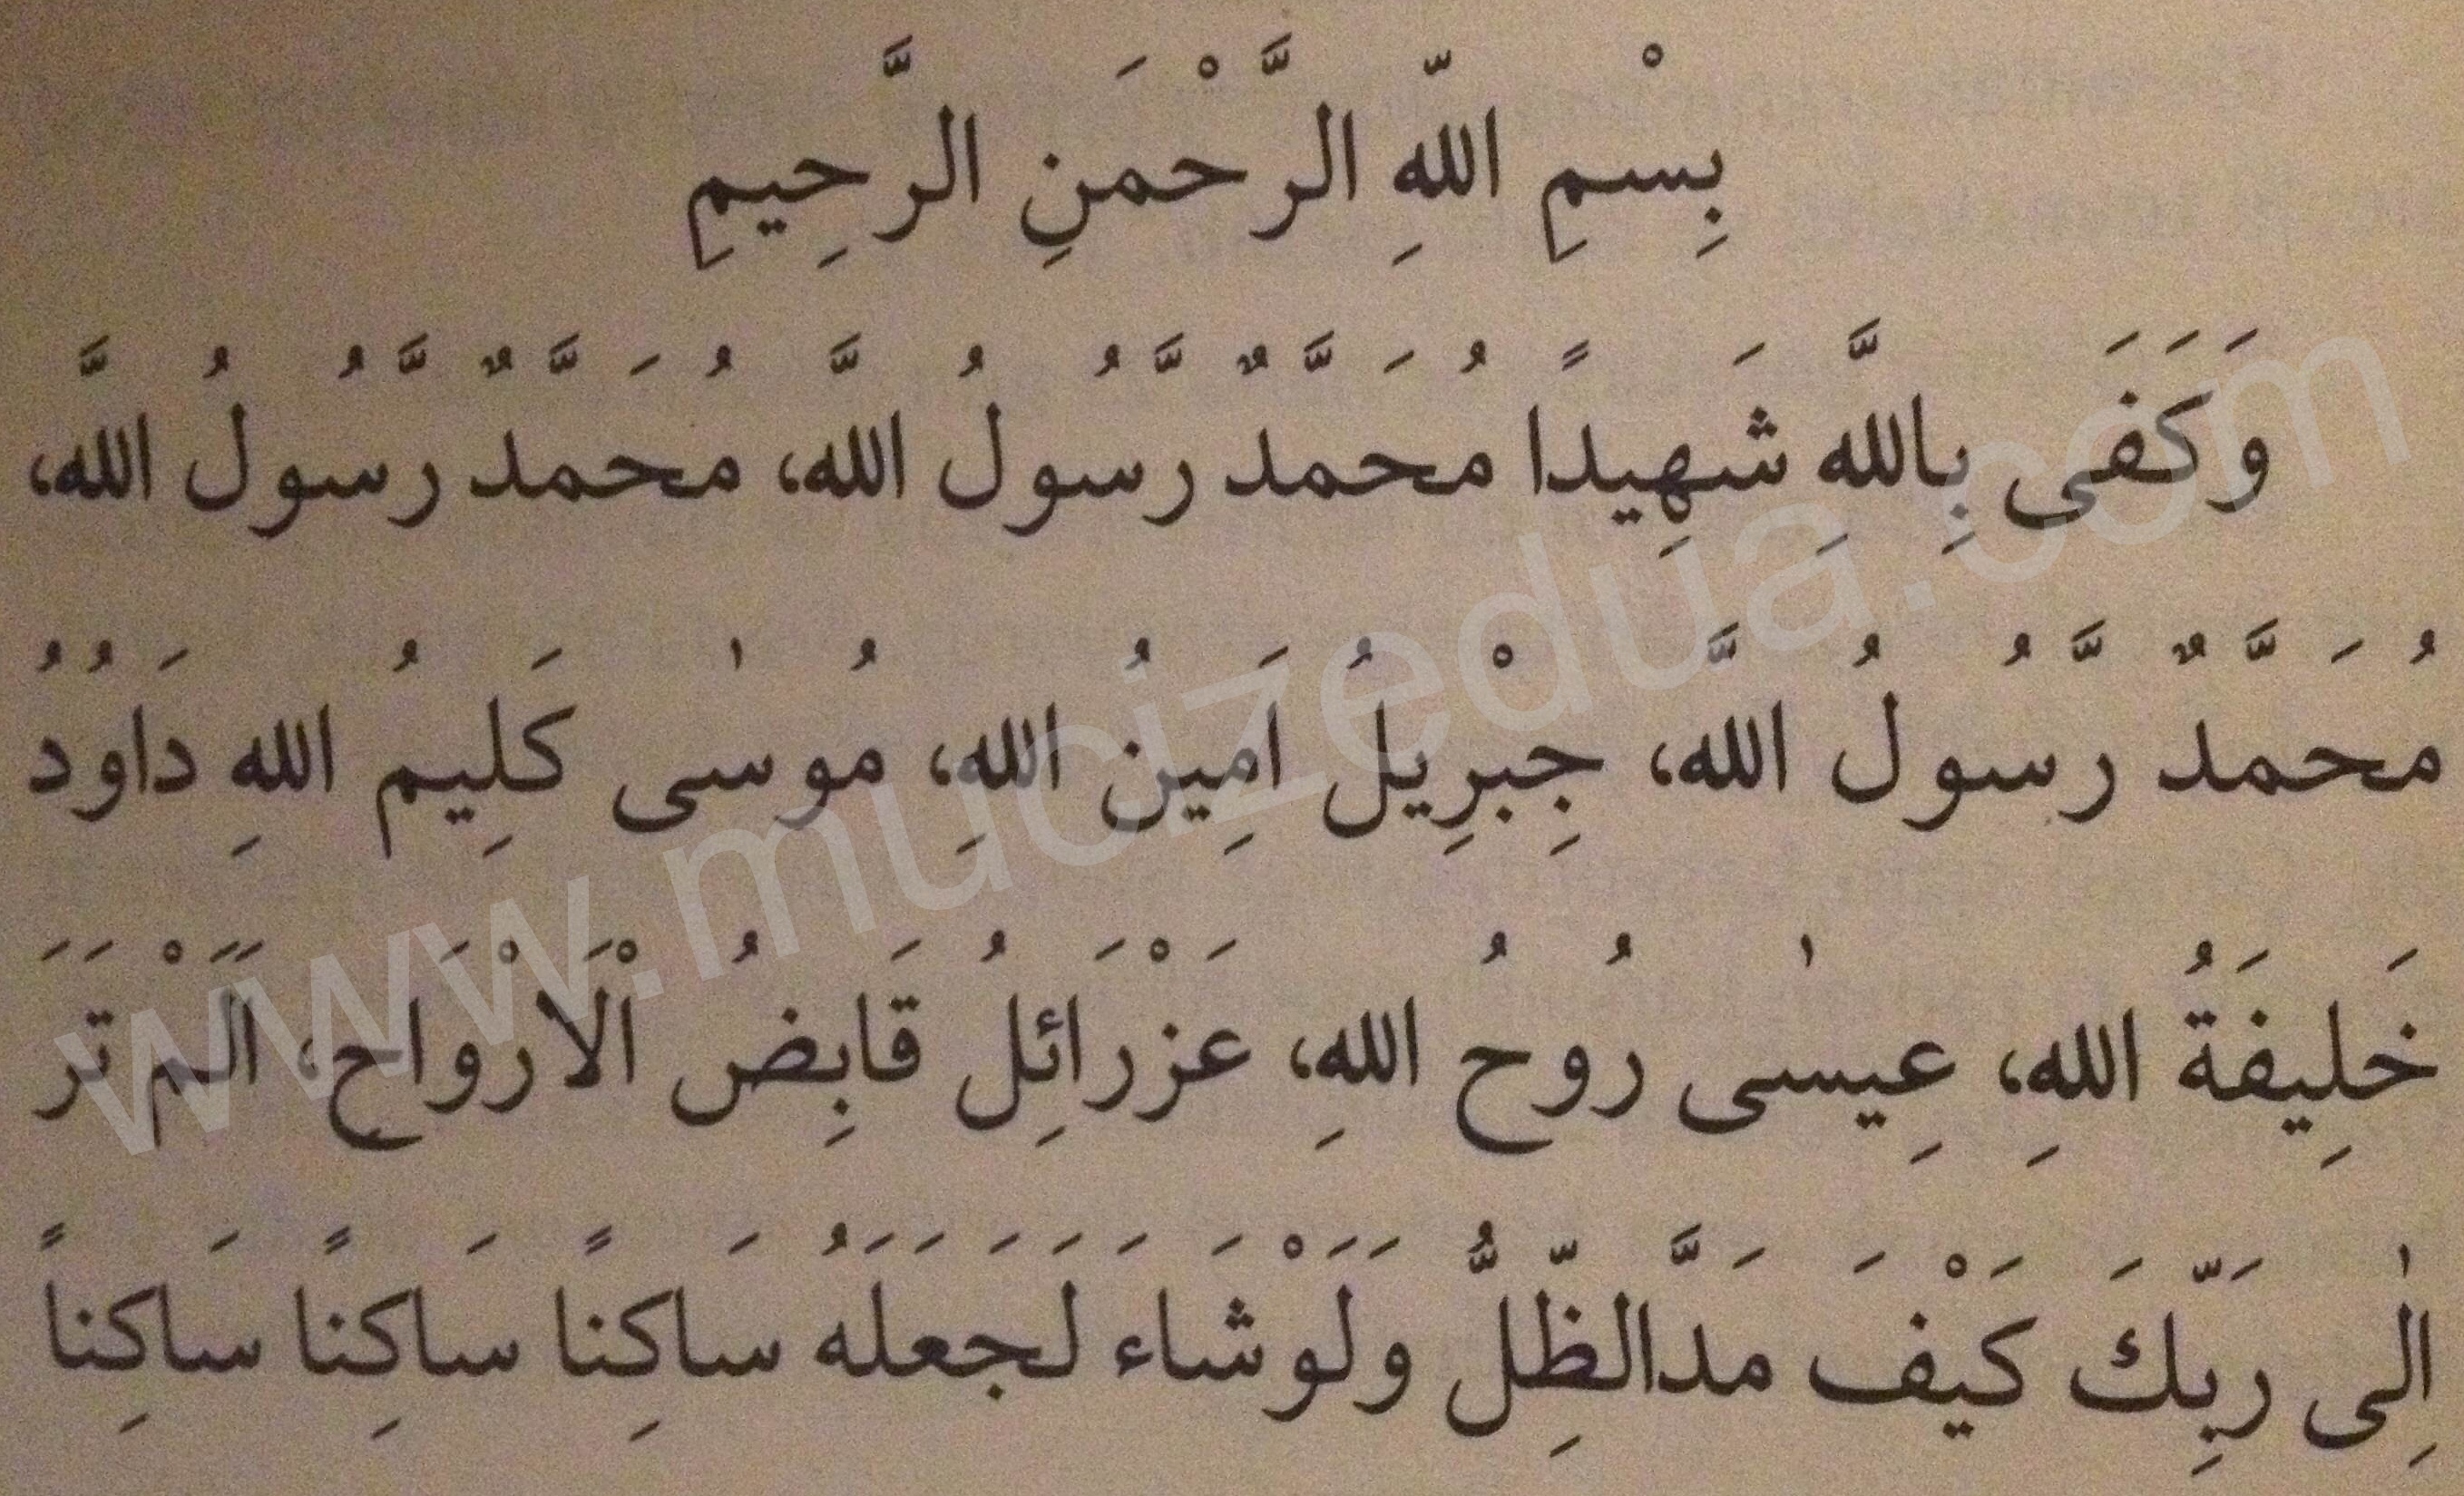 بِسْمِ اللّهِ الرَّحْمَنِ الرَّحِيمِ
وَكَفَى بِاللَّهِ شَهِيدًا مُحَمَّدٌ رَّسُولُ اللَّه، مُحَمَّدٌ رَّسُولُ اللَّه،
مُحَمَّدٌ رَّسُولُ اللَّه، جِبْرِيلُ اَمِينُ اللهِ، مُوسٰى كَلِيمُ اللهِ دَاوُدُ
خَلِيفَةُ اللهِ، عِيسٰى رُوحُ اللهِ، عَزْرَائِلُ قَابِضُ الْاَرْوَاحِ، اَلَمْ تَرَ
اِلٰى رَبِّكَ كَيْفَ مَدَّالظِّلُّ وَلَوْشَاءَ لَجَعَلَهُ سَاكِنًا سَاكِنًا سَاكِناً
www.mucizedua.com